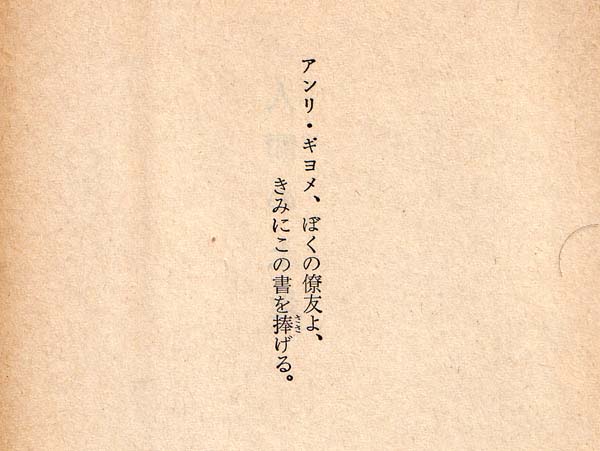 アンリ・ギヨメ、ぼくの僚友よ、
きみにこの書を捧げる。
ささ